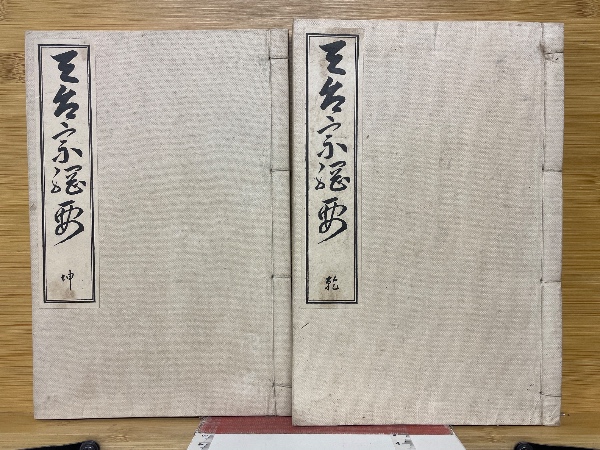 天台宗綱要
乾
天台宗綱要
坤